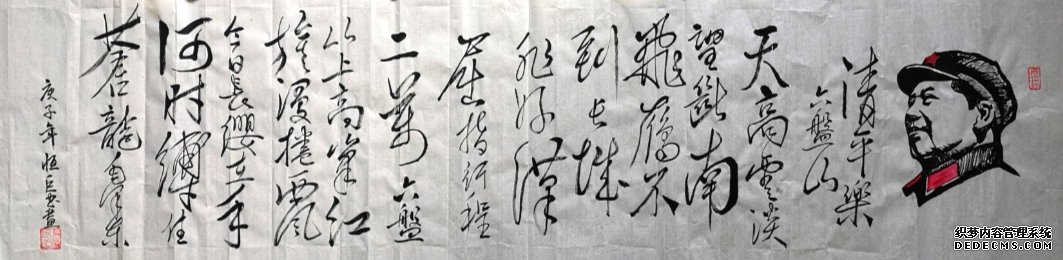 清平樂
六盤山
天高雲淡
望斷南
飛鴈不
到长城
非好漢
屈指行程
二萬 六盤
山上高峯红
旗漫捲西風
今日長缨在手
何时縛住
蒼龍毛泽东
庚子年恒书畫
织梦内容管理系统
DEDECMS.COM